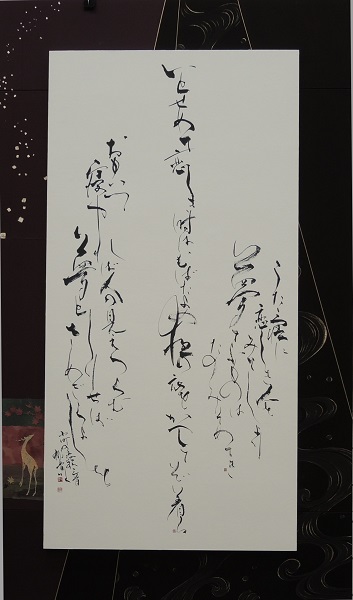 うたゝ寝に
恋しき人を
みてしより
夢てふものは
たのみそめてき
いとせめて戀しき時はむばたまの夜の衣をかへしてぞ着る
おもひつゝ
寝ればや
人の見えつらむ
夢としりせば
さめざらましを